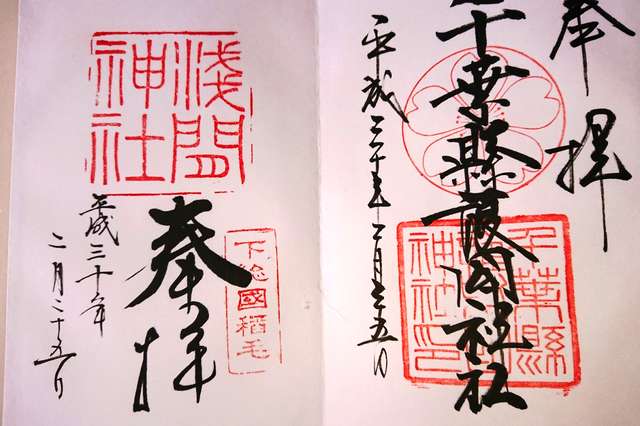 奉拝
千葉縣護國神社
平成三十年二月二十五日
千葉縣
神社印
淺間
神社
下総國稻毛
奉拝
平成三十年
二月二十五日